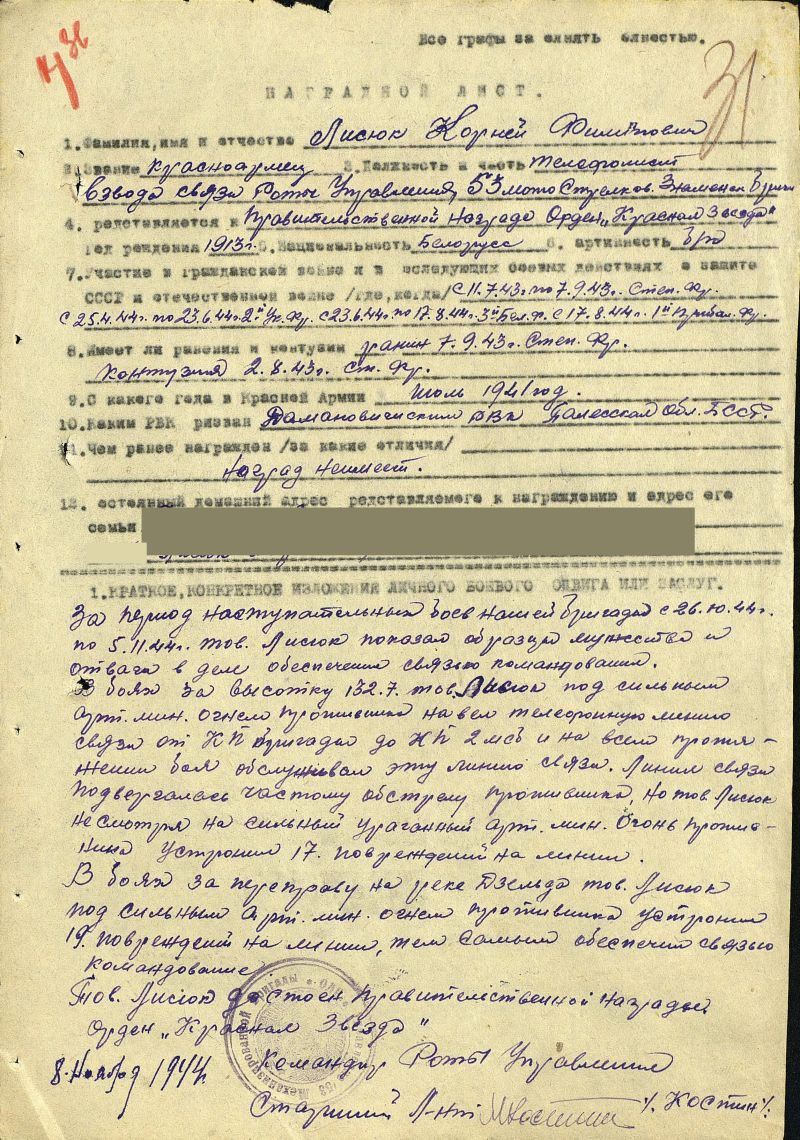 Все графы за олнять олностью.
7 зв
31
НАГРАДНОЙ ЛИСТ.
1. Фамилия, имя и отчество Лисюк Корней Филиппович
2. Звание Красноармеец 3. Должность и часть телефонист
Взвода связи Роты Управления, 53 мото Стрелков. Знаменск Бригады
4. редставляется к Правительственной Награде Орден „Красная Звезда"
Год рождения 1913 г. 5. Национальность Белорусс 6. артийность б/п
7. Участие в гражданской войне и в оследующих боевых действиях о защите
СССР и отечественной войне /где, когда/ с 11.7.43г. по 7.9.43г. Степ. Фр.
с 25.4.44г. по 23.6.44г. 2й Ук. Фр. с 23.6.44г. по 17.8.44г. 3й Бел. ф. с 17.8.44г. 1й Прибал. Фр.
8. Имеет ли ранения и контузии ранин 7.9.43г. Степ. Фр.
Контузия 2.8.43г. Ст. Фр.
9. С какого года в Красной Армии Июль 1941 год.
10. Каким РВК ризван Домановичиским РВК Палесской Обл. БССР.
11. Чем ранее награжден /за какие отличия/
Наград неимеет.
12. остоянный домашний адрес редставляемого к награждению и адрес его
семьи
1. КРАТКОЕ, КОНКРЕТНОЕ ИЗЛОЖЕНИЕ ЛИЧНОГО БОЕВОГО ОДВИГА ИЛИ ЗАСЛУГ.
За период наступательных боев нашей бригады с 26.10.44г.
по 5.11.44г. тов. Лисюк показал образцы мужества и
отваги в деле обеспечения связью командования.
В боях за высотку 132.7. тов. Лисюк под сильным
арт. мин. огнем противника навел телефонную линию
связи от КП бригады до КП 2 мсб и на всем протя-
жении боя обслуживал эту линию связи. Линия связи
подвергалась частому обстрелу противника, но тов. Лисюк
несмотря на сильный ураганный арт. мин. Огонь против-
ника устронил 17. повреждений на линии.
В боях за переправу на реке Дзельда тов. Лисюк
под сильным арт. мин. огнем противника устронил
19. повреждений на линии, тем самым обеспечил связью
командование.
Тов. Лисюк достоен Правительственной Награды
Орден „Красная Звезда"
Командир Роты Управления
8. Ноября 1944г.
Старший Л-нт /. Костин /.